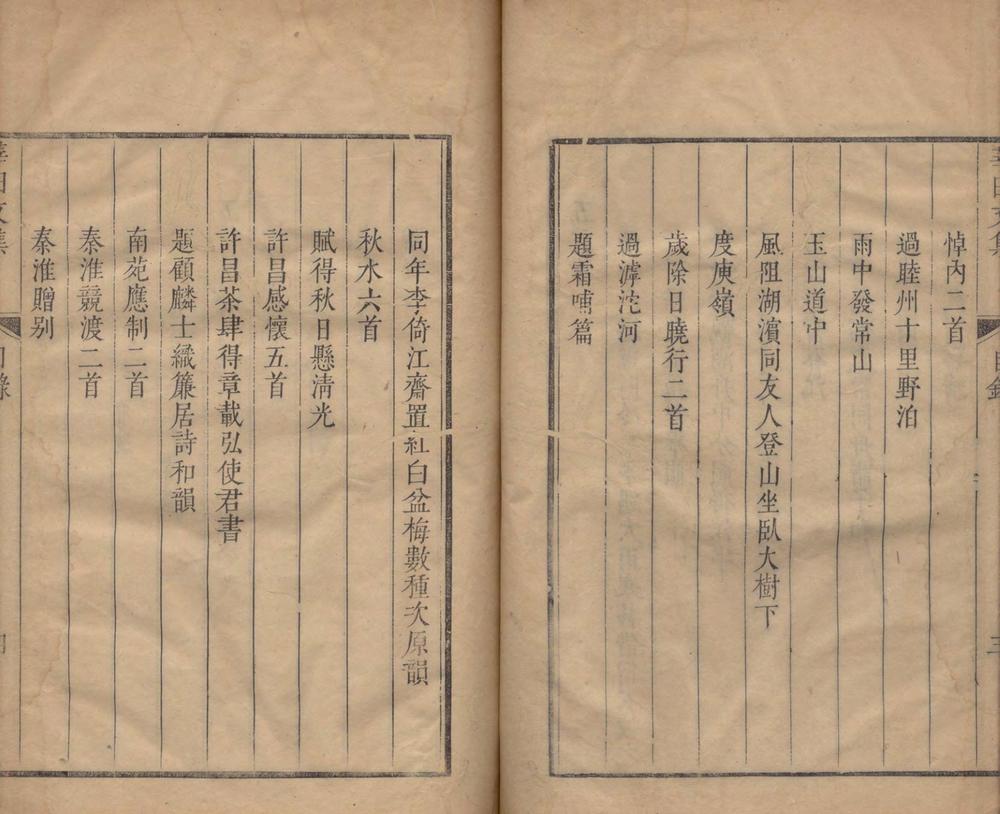 悼內二首
過睦州十里野泊
雨中發常山
玉山道中
風阻湖濱同友人登山坐臥大樹下
度庾嶺
歲除日曉行二首
過滹沱河
題霜哺篇
同年李倚江齋置紅白盆梅數種次原韻
秋水六首
賦得秋日懸淸光
許昌感懷五首
許昌茶肆得章載弘使君書
題顧麟士織簾居詩和韻
南苑應制二首
秦淮競渡二首
秦淮贈别